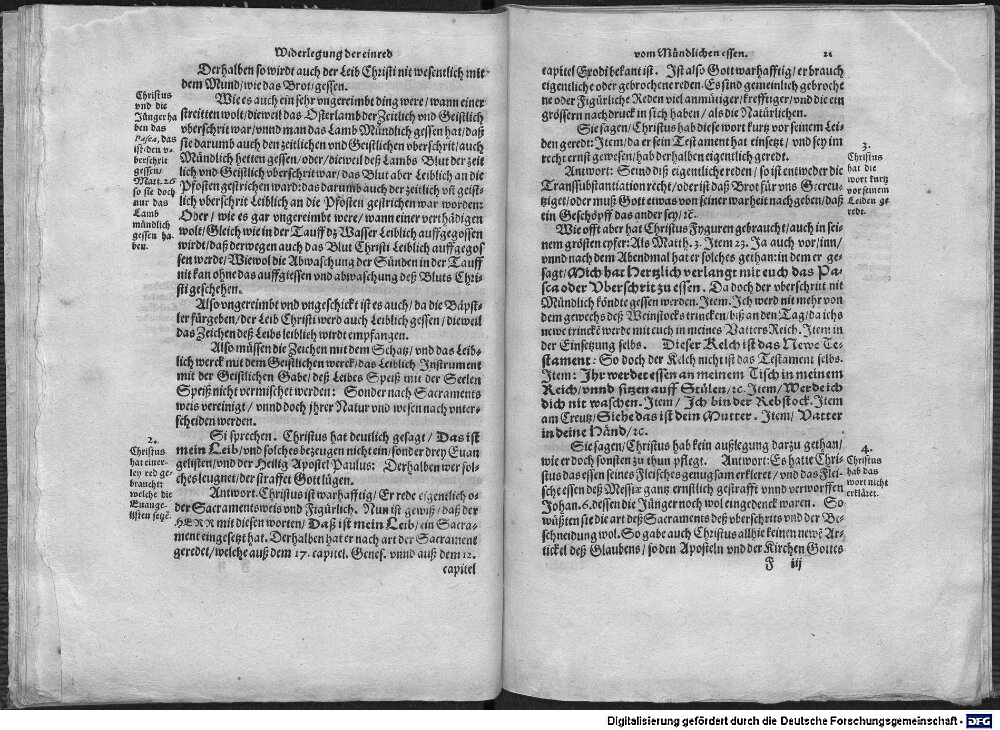 Widerlegung der einred
Derhalben so wirdt auch der Leib Christi nit wesentlich mit
dem Mund/wie das Brot/gessen.
Wie es auch ein sehr vngereimbt ding were/wann einer
streitten wolt/dieweil das Osterlamb der Zeitlich vnd Geistlich
vberschrit war/vnnd man das Lamb Mündlich gessen hat/daß
sie darumb auch den zeitlichen vnd Geistlichen vberschrit/auch
Mündlich hetten gessen/oder/dieweil deß Lambs Blut der zeit
lich vnd Geistlich vberschrit war/das Blut aber Leiblich an die
Pfosten gestrichen ward: das darumb auch der zeitlich vñ geist-
lich vberschrit Leiblich an die Pfösten gestrichen war worden:
Oder/wie es gar vngereimbt were/wann einer verthädigen
wolt/Gleich wie in der Tauff dz Wasser Leiblich auffgegossen
wirdt/daß derwegen auch das Blut Christi Leiblich auffgegos
sen werde/Wiewol die Abwaschung der Sünden in der Tauff
nit kan ohne das auffgiessen vnd abwaschung deß Bluts Chri-
sti geschehen.
Also vngereimbt vnd vngeschickt ist es auch/da die Bäpst-
ler fürgeben/der Leib Christi werd auch Leiblich gessen/dieweil
das Zeichen deß Leibs leiblich wirdt empfangen.
Also müssen die Zeichen mit dem Schatz/vnd das Leib-
lich werck mit dem Geistlichen werck/das Leiblich Instrument
mit der Geistlichen Gabe/deß Leibes Speiß mit der Seelen
Speiß nicht vermischet werden: Sonder nach Sacraments
weis vereinigt/vnnd doch jhrer Natur vnd wesen nach vnter-
scheiden werden.
Si sprechen. Christus hat deutlich gesagt/Das ist
mein Leib/vnd solches bezeugen nicht ein/sonder drey Euan
gelisten/vnd der Heilig Apostel Paulus: Derhalben wer sol-
ches leugnet/der straffet Gott lügen.
Antwort. Christus ist warhafftig/Er rede eigentlich o-
der Sacramentsweis vnd Figürlich. Nun ist gewiß/daß der
HERR mit diesen worten/Daß ist mein Leib/ein Sacra-
ment eingesetzt hat. Derhalben hat er nach art der Sacrament
geredet/welche auß dem 17. capitel. Genes. vnnd auß dem 12.
capitel
Christus
vnd die
Jünger ha
ben das
Pasca, das
ist/den v-
berschrit
gessen/
Matt. 26
so sie doch
nur das
Lamb
mündlich
gessen ha-
ben.
2.
Christus
hat einer-
ley red ge-
braucht
welche die
Euange-
listen setzē.
vom Mündlichen essen. 21
capitel Exodi bekant ist. Ist also Gott warhafftig/er brauch
eigentliche oder gebrochene reden. Es sind gemeinlich gebroche
ne oder Figürliche Reden viel anmütiger/krefftiger/vnd die ein
grössern nachdruck in sich haben/als die Natürlichen.
Sie sagen/Christus hab diese wort kurtz vor seinem Lei-
den geredt: Item/da er sein Testament hat einsetzt/vnd sey im
recht ernst gewesen/hab derhalben eigentlich geredt.
Antwort: Seind diß eigentliche reden/so ist entweder die
Transsubstantiation recht/oder ist daß Brot für vns Gecreu-
tziget/oder muß Gott etwas von seiner warheit nachgeben/daß
ein Geschöpff das ander sey/ꝛc̄.
Wie offt aber hat Christus Fyguren gebraucht/auch in sei-
nem grösten eyfer: Als Matth. 3. Item 23. Ja auch vor/inn/
vnnd nach dem Abendmal hat er solches gethan: in dem er ge-
sagt/Mich hat Hertzlich verlangt mit euch das Pa-
sca oder Vberschrit zu essen. Da doch der vberschrit nit
Mündlich köndte gessen werden. Item. Ich werd nit mehr von
dem gewechs deß Weinstocks trincken/biß an den Tag/da ichs
newe trinckē werde mit euch in meines Vatters Reich. Item in
der Einsetzung selbs. Dieser Kelch ist das Newe Te-
stament: So doch der Kelch nicht ist das Testament selbs.
Item: Ihr werdet essen an meinem Tisch in meinem
Reich/vnnd sitzen auff Stülen/ꝛc. Item/Werde ich
dich nit waschen. Item/Ich bin der Rebstock. Item
am Creutz/Siehe das ist dein Mutter. Item/Vatter
in deine Händ/ꝛc.
Sie sagen/Christus hab kein außlegung darzu gethan/
wie er doch sonsten zu thun pflegt. Antwort: Es hatte Chri-
stus das essen seines Fleisches genugsam erkleret/vnd das Flei-
scht essen deß Messiæ gantz ernstlich gestrafft vnnd verworffen
Johan. 6. dessen die Jünger noch wol eingedenck waren. So
wüßten sie die art deß Sacraments deß vberschrits vnd der Be-
schneidung wol. So gabe auch Christus allhie keinen newē Ar-
tickel deß Glaubens/so den Aposteln vnd der Kirchen Gottes
F iij
3.
Christus
hat die
wort kurtz
vor seinem
Leiden ge
redt.
4.
Christus
hab das
wort nicht
erklärt.
Digitalisierung gefördert durch die Deutsche Forschungsgemeinschaft - DFG